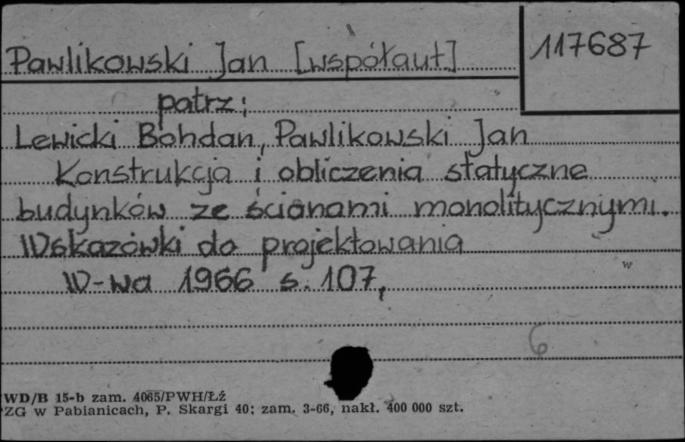 Pawlikowski Jan [współaut] 117687
patrz:
Lewicki Bohdan, Pawlikowski Jan
Konstrukcja i obliczenia statyczne
budynków ze ścianami monolitycznymi.
Wskazówki do projektowania
W-wa 1966 s. 107,
w
6
WD/B 15-b zam. 4065/PWH/ŁŹ
ZG w Pabianicach, P. Skargi 40; zam. 3-66, nakł. 400 000 szt.